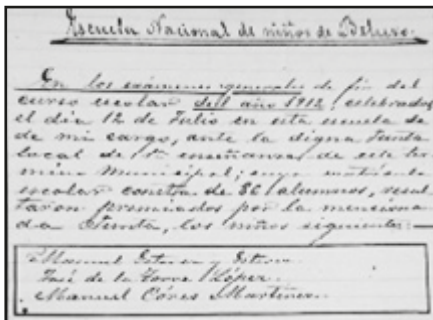 Escuela Nacional de niños de Beluso.
En los exámenes generales de fin del
curso escolar del año 1912, celebrados
el dia 12 de Julio en esta escuela
de mi cargo, ante la digna Junta
local de 1ª enseñanza de este tér
mino Municipal; cuya matrícula
escolar constra de 86 alumnos, resul
taron premiados por la menciona
da Junta, los niños siguientes:—
Manuel Esteves y Esteves
José de la Torre López.
Manuel Córes Martínez.